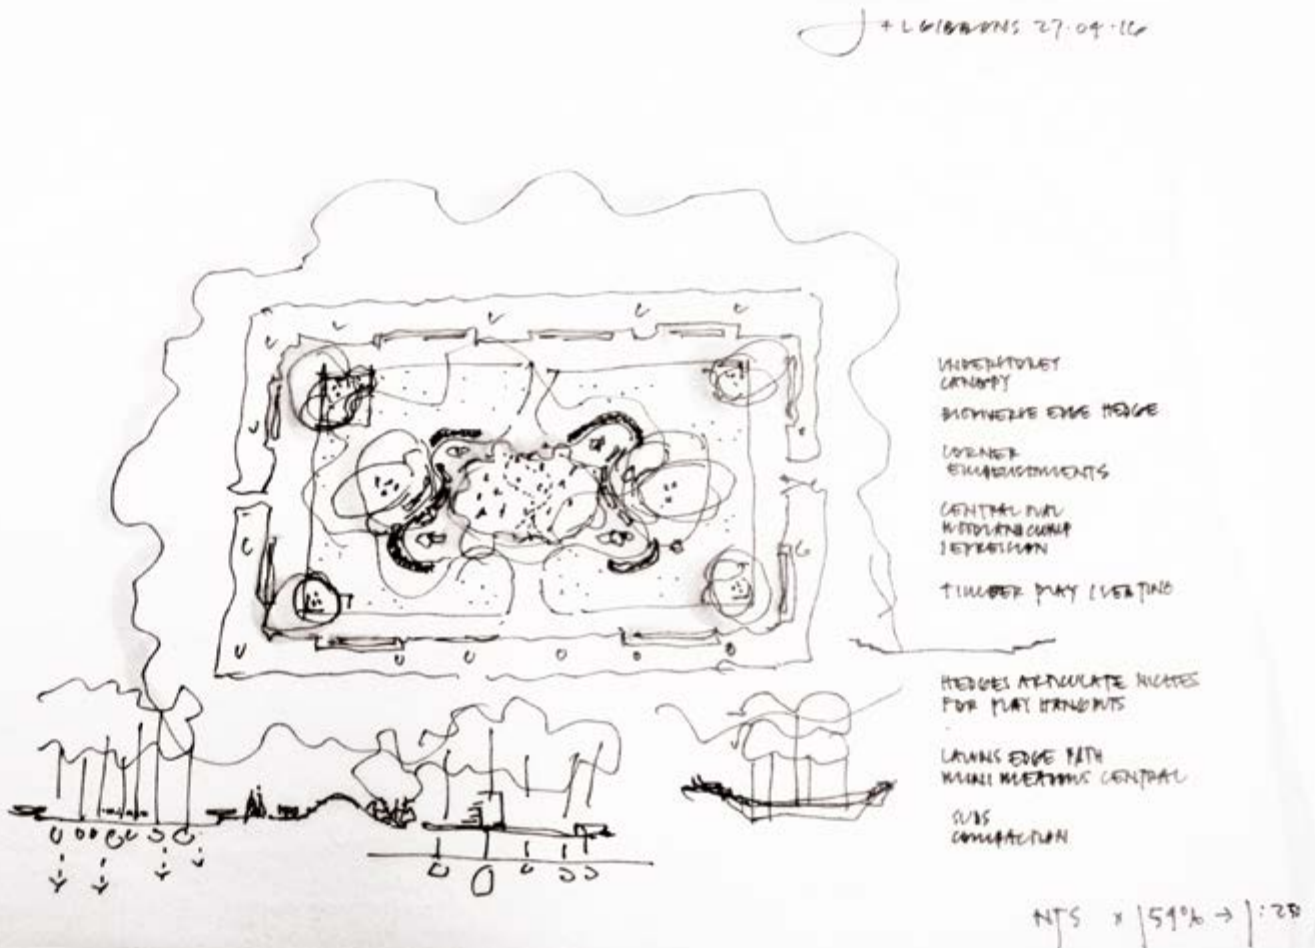 J + L GIBBONS 27.04.16
UNDERSTOREY
CANOPY
BIODIVERSE EDGE HEDGE
CORNER
EMBELLISHMENTS
CENTRAL OVAL
WOODLAND CLUMP
DEPRESSION
TIMBER PLAY SEATING
HEDGES ARTICULATE NICHES
FOR PLAY HANGOUTS
LAWNS EDGE PATH
MINI MEADOWS CENTRAL
SUDS
COMPACTION
NTS x 159% → 1:25